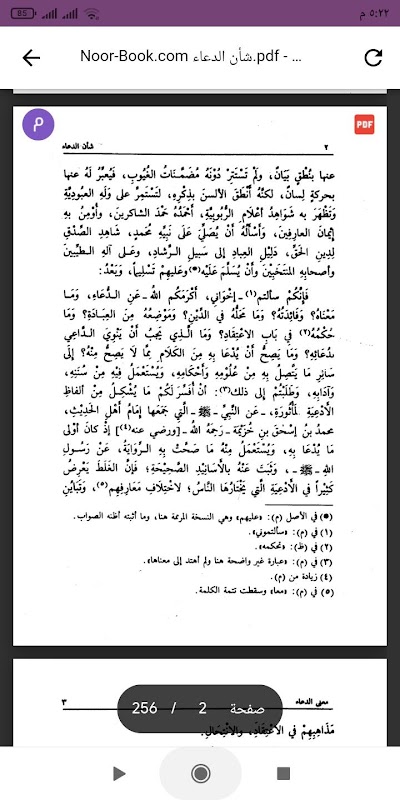 85
٥:٢٢ م
Noor-Book.com شأن الدعاء.pdf - ...
م
PDF
٢
شأن الدعاء
عنها بنُطْقٍ بَيَانٌ، ولَمْ تَسْتَتِرْ دُونَهُ مُضَمَّنَاتُ الغُيُوبِ، فَيُعَبَّرُ لَهُ عنها
بحركةِ لِسانٌ، لكنَّهُ أَنْطَقَ الألسنَ بذِكْرِهِ، لتَسْتَمِرَّ على وَلَهِ العبوديَّةِ
وتَظْهَرَ به شواهِدُ أعْلَامِ الرُّبُوبِيَّةِ، أَحْمَدُهُ حَمْدَ الشاكرينَ، وأُوْمِنُ بهِ
إيمانَ العارِفينَ، وَأَسْأَلُهُ أَنْ يُصَلِّيَ عَلَى نَبِيِّهِ مُحمدٍ، شَاهِدِ الصِّدْقِ
لِدينِ الحَقِّ، دَلِيْلِ العِبادِ إلى سَبيلِ الرَّشادِ، وعَلى آلهِ الطيِّبينَ
وأصحابِهِ المنتَخَبِينَ وأَنْ يُسَلِّمَ عَلَيْه(●) وعَليهمْ تَسْليماً، وبَعْدُ:
فَإنَّكُمْ سألتم(١) -إخواني، أكْرَمَكُم الله- عَنِ الدُّعَاءِ، وَمَا
مَعْنَاهُ؟ وَفَائِدَتُهُ؟ وَمَا مَحَلُّهُ في الدِّيْنِ؟ وَمَوْضِعُهُ مِنَ العِبَادَةِ؟ وَمَا
حُكْمُهُ(٢) في بَابِ الاعْتِقَادِ؟ وَمَا الَّذي يَجِبُ أَنْ يَنْوِيَ الدَّاعِي
بدُعَائِهِ؟ وَمَا يَصِحُّ أَنْ يُدْعَا بِهِ مِنَ الكَلَامِ مِمَّا لَا يَصِحُّ مِنْهُ؟ إلى
سَائِرِ مَا يَتَّصِلُ بِهِ مِنْ عُلُوْمِهِ وَأَحْكَامِهِ، وَيُسْتَعْمَلُ فِيْهِ مِنْ سُنَنِهِ،
وآدَابِهِ، وطَلَبْتُمْ إلى ذلك(٣): أَنْ أُفَسِّرَ لَكُمْ مَا يُشْكِلُ مِنْ ألفاظِ
الأَدْعِيَةِ المَأْثُورَةِ، -عَنِ النَّبِيِّ -ﷺ- الَّتي جَمَعَها إمَامُ أَهْلِ الحَدِيْثِ،
محمدُ بنُ إسْحقَ بنِ خُزَيْمَةَ -رَحِمَهُ الله- [ورضي عنه(٤)] إذ كانَ أوْلى
مَا يُدْعَا بِهِ، وَيُسْتَعْمَلُ مِنْهُ مَا صَحَّتْ بِهِ الرِّوَايَةُ، عَنْ رَسُولِ
اللهِ -ﷺ-، وَثَبَتَ عَنْهُ بالأَسَانِيْدِ الصَّحِيْحَةِ؛ فإنَّ الغَلَطَ يَعْرِضُ
كَثِيْراً في الأَدْعِيَةِ الَّتي يَخْتَارُهَا النَّاسُ؛ لاخْتِلَافِ مَعَارِفِهم(٥)، وَتَبَايُنِ
(●) في الأصل (م): «عليهم» وهي النسخة المرممة هنا، وما أثبته أظنه الصواب.
(١) في (م): «سألتموني».
(٢) في (ظ): «تحكمه».
(٣) في (م): «عبارة غير واضحة هنا ولم أهتد إلى معناها».
(٤) زيادة من (م).
(٥) في (م): «معا» وسقطت تتمة الكلمة.
معنى الدعاء
٣
صفحة 2 / 256
مَذَاهِبِهِمْ في الاعْتِقَادِ، والانْتِحَالِ.